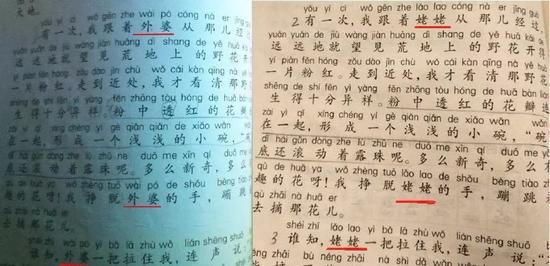 天地。
yǒu yí cì wǒ gēn zhe wài pó cóng nà er jīng
有一次,我跟着外婆从那儿经
yuǎn yuǎn de jiù wàng jiàn huāng dì shang de yě huā kāi
远远地就望见荒地上的野花开
yí piàn fěn hóng zǒu dào jìn chù wǒ cái kàn qīng nà
一片粉红。走到近处,我才看清那
shēng de shí fēn yì yàng fěn zhōng tòu hóng de huā bàn
生得十分异样。粉中透红的花瓣
zài yì qǐ xíng chéng yí gè qiǎn qiǎn de xiǎo wǎn
在一起,形成一个浅浅的小碗,“
dǐ hái gǔn dòng zhe lù zhū ne duō me xīn qí duō
底还滚动着露珠呢。多么新奇、多
qù de huā ya wǒ zhèng tuō wài pó de shǒu bèng tiào
趣的花呀!我挣脱外婆的手,蹦跳
qù zhāi nà huā er
去摘那花儿。
shéi zhī wài pó yì bǎ lā zhù wǒ lián shēng shuō
谁知,外婆一把拉住我,连声说
yǒu yí cì wǒ gēn zhe lǎo lao cóng nà er jīng guò
2有一次,我跟着姥姥从那儿经过,
yuǎn yuǎn de jiù wàng jiàn huāng dì shang de yě huā kāi de
远远地就望见荒地上的野花开得
yí piàn fěn hóng zǒu dào jìn chù wǒ cái kàn qīng nà yě huā
一片粉红。走到近处,我才看清那野花
shēng de shí fēn yì yàng fěn zhōng tòu hóng de huā bàn lián
生得十分异样。粉中透红的花瓣连
zài yì qǐ xíng chéng yí gè qiǎn qiǎn de xiǎo wǎn wǎn
在一起,形成一个浅浅的小碗,“碗
dǐ hái gǔn dòng zhe lù zhū ne duō me xīn qí duō me
底还滚动着露珠呢。多么新奇、多么
qù de huā ya wǒ zhèng tuō lǎo lao de shǒu bèng tiào
趣的花呀!我挣脱姥姥的手,蹦跳
qù zhāi nà huā er
去摘那花儿。
shéi zhī lǎo lao yì bǎ lā zhù wǒ lián shēng shuō
3谁知,姥姥一把拉住我,连声说: